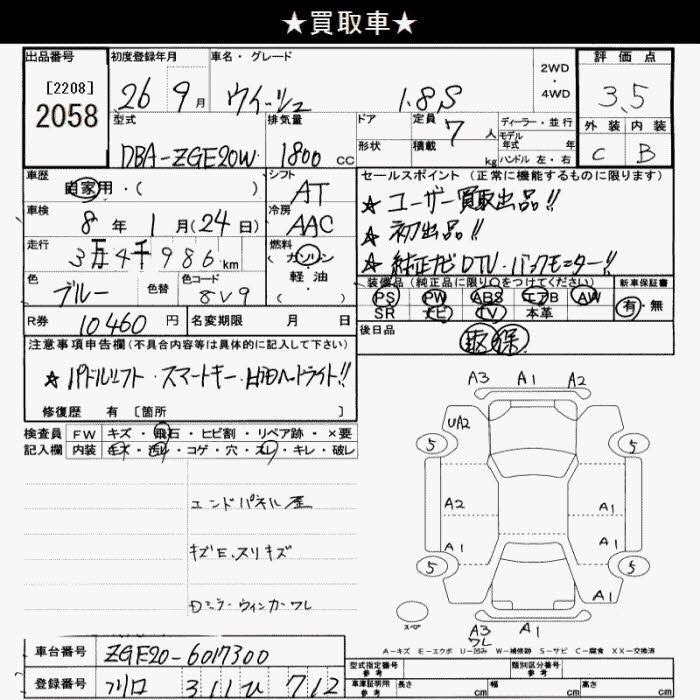 ★買取車★
出品番号 初度登録年月 車名・グレード 評価点
[2208]
2058
26 9月 ウィッシュ 1.8S 2WD・4WD 3.5
型式 排気量 ドア 定員 7人 ディーラー・並行 外装 内装
形状 積載 kg モデル年式 年 ハンドル 左・右
DBA-ZGE20W 1800cc C B
車歴 シフト セールスポイント(正常に機能するものに限ります)
自家用・( ) AT ★ユーザー買取出品!!
車検 冷房
8年1月(24日) AAC ★初出品!!
走行 燃料
3万4千986km ガソリン ★純正ナビDTV・バックモニター!!
軽・油
( )
色 色替 色コード 装備品(純正品に限り○をつけてください) 新車保証書
ブルー 8V9 PS PW ABS エアB AW 有・無
SR ナビ TV 本革
R券 10460円 名変期限 月 日 後日品
取 保
注意事項申告欄(不具合内容等は具体的に記入して下さい)
★パドルシフト・スマートキー・HIDヘッドライト!!
修復歴 有 [箇所 ]
検査員 FW キズ・飛石・ヒビ割・リペア跡・×要
記入欄 内装 キズ・汚れ・コゲ・穴・スレ・キレ・破レ
エンドパネル歪
キズE、スリキズ
Dミラーウィンカーワレ
A3 A1 A2
UA2
5 5
A2 A1
A1 A1
5 5
A1
スペア
A3 A1
ワレ
A-キズ E-エクボ U-凹み W-補修跡 S-サビ C-腐食 XX-交換済
車台番号 ZGE20-6017300 型式指定番号 参考 類別区分番号 参考
登録番号 311ひ712 車庫証明用 参考 長さ cm 幅 cm 高さ cm